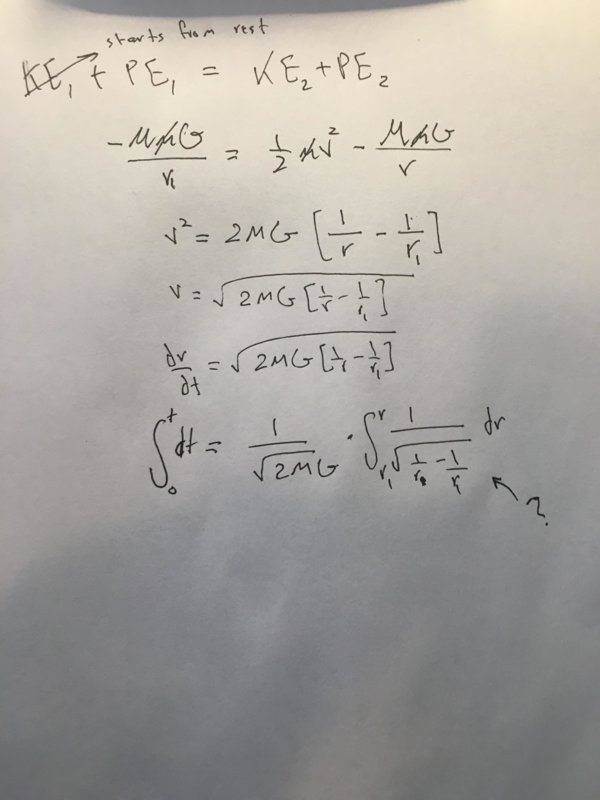 starts from rest
KE₁ + PE₁ = KE₂ + PE₂
-MmG/r₁ = 1/2 mv² - MmG/r
v² = 2MG [1/r - 1/r₁]
v = √(2MG [1/r - 1/r₁])
dr/dt = √(2MG [1/r - 1/r₁])
∫₀ᵗ dt = 1/√(2MG) · ∫_{r₁}^{r} 1/√(1/r - 1/r₁) dr
?